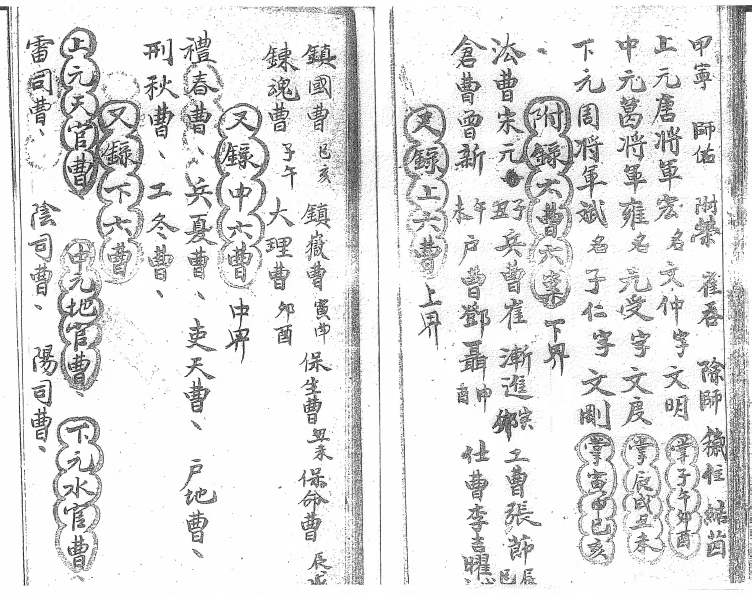 甲寧 師佑 附榮 崔吞 除師 猿任 結茵
上元唐將軍宏名文仲字文明掌子午卯酉
中元葛將軍雍名元受字文度掌辰戌丑未
下元周將軍斌名子仁字文剛掌寅申巳亥
附錄六曹六案 下界
法曹宋元子丑 兵曹崔漸進寅卯 工曹張節辰巳
倉曹曾新午未 戶曹鄧聶申酉 仕曹李吉曜
又錄上六曹 上界
鎮國曹巳亥 鎮嶽曹寅申 保生曹丑未 保命曹辰戌
錬魂曹子午 大理曹卯酉
又錄中六曹 中界
禮春曹、兵夏曹、吏天曹、戶地曹、
刑秋曹、工冬曹、
又錄下六曹
上元天官曹 中元地官曹、下元水官曹、
雷司曹、 陰司曹、 陽司曹、